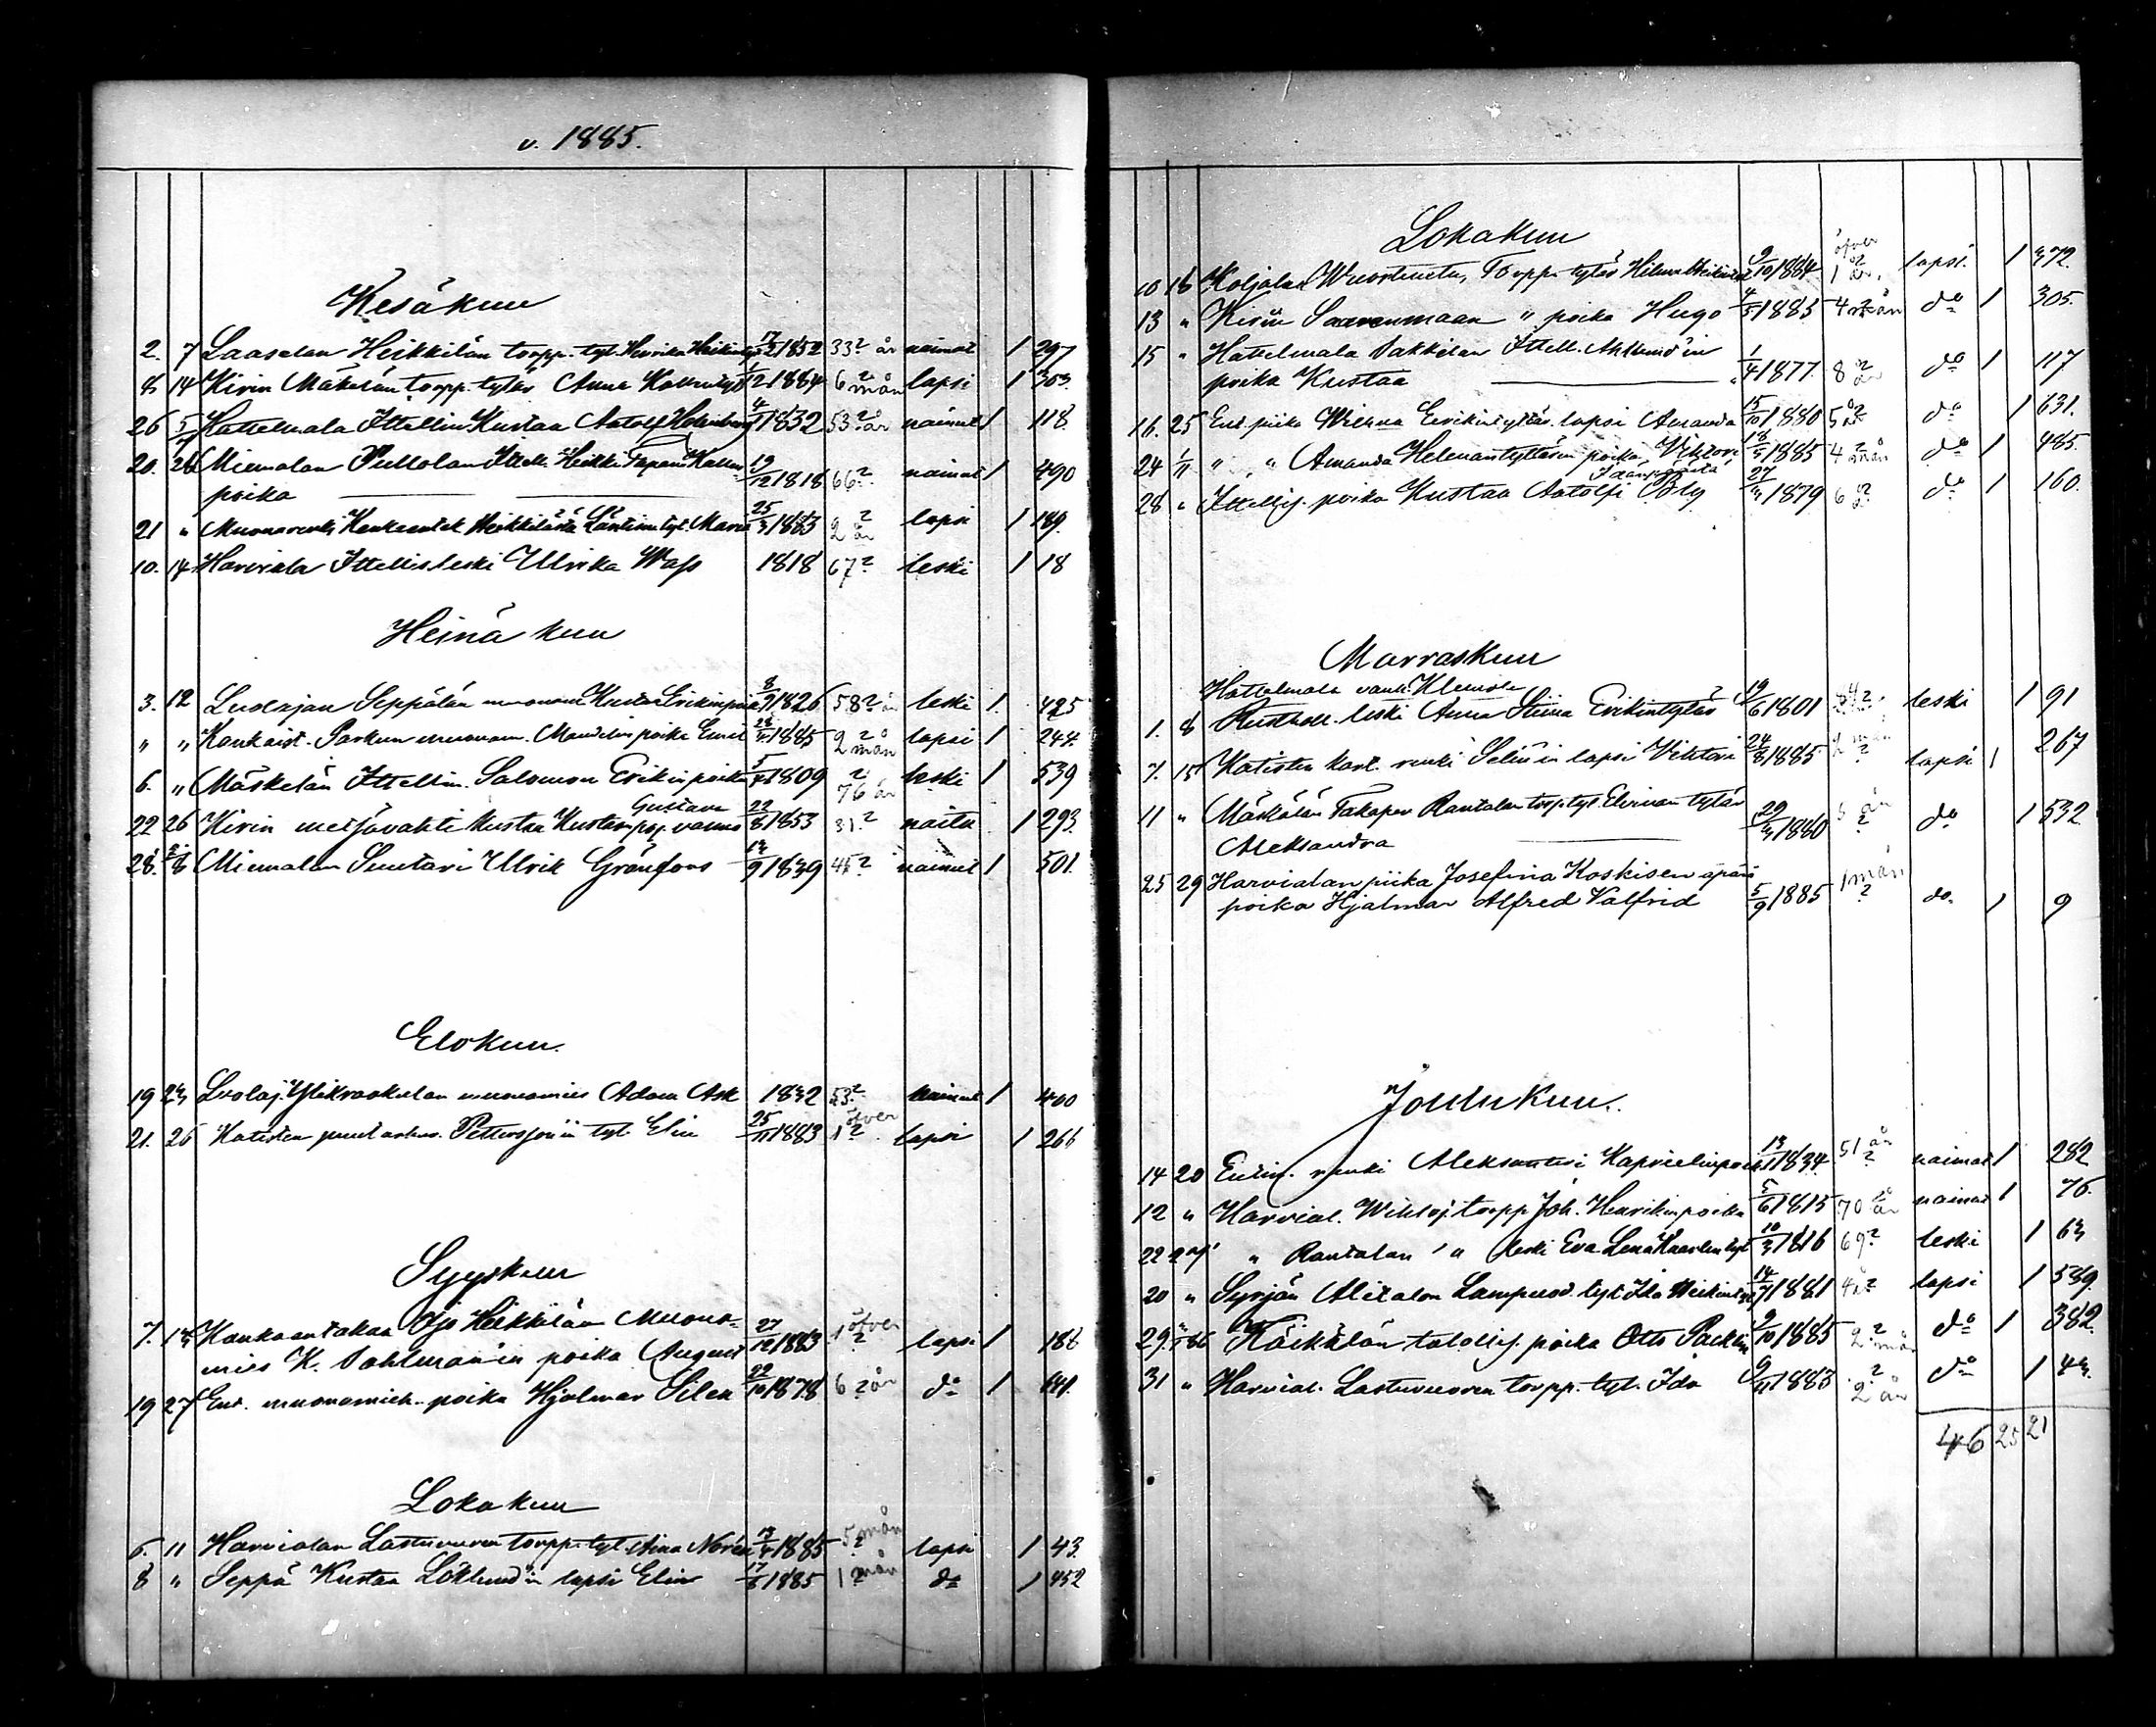 v. 1885.
Kesäkuu
2. 7 Laaselan Heikkilän torpp. tyt. Henrika Heikint. 17/2 1852 33 2 år naimat 1 297
8 14 Kirin Mäkelän torpp. tytär Anna 1/12 1884 6 2 mån lapsi 1 303
26 5/7 Hattelmala Ittellin. Kustaa Aatolf Holmberg 4/1 1832 53 2 år naimut 1 118
20. 26 Miemalan Pullolan Heikki Tapani Kallen
poika 19/12 1818 66 2 naimut 1 490
21 " Muonarenki Heikkilästä tyt. Maria 25/3 1883 2 2 år lapsi 1 189.
10. 14 Harviala Ittellisleski Ulrika Wass 1818 67 2 leski 1 18
Heinä kuu
3. 12 Luolajan Seppälän muonam. Kustaa Erikinpoika 8/9 1826 58 2 år leski 1 425
" " Kankaist. Parkun muonam. poika Emil 1885 2 2 mån lapsi 1 244.
6. " Mäskelän Ittellin. Salomon Erikinpoika 5/4 1809 2 76 år leski 1 539
Gustava
22 26 Kirin metsävahti Kustaa Kustaanpoj. vaimo 22/8 1853 31. 2 naitu 1 293.
28. 2/8 Miemalan Suutari Ulrik Grönfors 13/9 1839 45 2 naimut 1 501.
Elokuu.
19 23 Luolaj. muonamies Adam Ask 1832 53. 2 naimut 1 400
21. 26 Katisten Pettersson'in tyt. Elin 25/11 1883 öfver 1 2 lapsi 1 266
Syyskuu
7. 13 Kankaantakaa Ojo Heikkilän Muona-
mies K. Dahlman'in poika August 27/12 1883 öfver 1 2 lapsi 1 186
19 27 Ent. muonamieh. poika Hjalmar Silen 22/10 1878 6 2 år do 1 641.
Lokakuu
6. 11 Harvialan Lastuvuoren torpp. tyt. Aina Norén 13/4 1885 5 mån 2 lapsi 1 43.
8 " Seppä Kustaa Löklund'in lapsi Elin 17/8 1885 1 2 mån do 1 452
Lokakuu
10 18 Koljalan Wuorentaka, Torpp. tytär Hilma 9/10 1884 öfver 2 1 år. lapsi. 1 372.
13 " Kirin Saarenmaan " poika Hugo 4/5 1885 4 2 mån do 1 305.
15 " Hattelmala Pakkilan Ittell. Ahlund'in
poika Kustaa 1/4 1877 8 2 år do 1 117
16. 25 Ent. piika Wilhma Eerikintyttär. lapsi Amanda 15/10 1880 5 2 år do 1 631.
24 1/11 " " Amanda Helenantyttären poika Vihtori 18/5 1885 4 2 mån do 1 485.
28 " Ittellisj. poika Kustaa Aatolfi Öly 27/3 1879 6 2 år do 1 160.
Marraskuu
Hattelmala vanh. Klemola
1. 8 Rusthol. leski Anna Stiina Erikintytär 19/6 1801 84 2 leski 1 91
7. 15 Katisten kart. renki Selin'in lapsi Vihtori 24/8 1885 2 mån 2 lapsi 1 267
11 " Mäskälän Takaperä Rantalan torp. tyt. Elviran tytär
Aleksandra 29/3 1880 5 år 2 do 1 532
25 29 Harvialan piika Josefina Koskisen äpärä
poika Hjalmar Alfred Valfrid 5/9 1885 1 mån 2 do. 1 9
Joulukuu.
14 20 Entin. renki Aleksanteri Kaprielinpoika 13/11 1834 51 år 2 naimut 1 282
12 " Harvial. torpp. Joh. Henrikinpoika 5/6 1815 70 2 år naimat 1 76.
22 27 " Rantalan " leski Eva Lena Kaarlentyt 10/3 1816 69 2 leski 1 63
20 " Syrjän Alitalon Lampuod. tyt. Ida Heikint. 14/7 1881 4 2 år lapsi 1 539.
29. 1/1 86 Räikkälän talollisj. poika Otto 9/10 1885 2 2 mån do 1 382.
31 " Harvial. Lastuvuoren torpp. tyt. Ida 9/11 1883 2 2 år do 1 43.
46 25 21